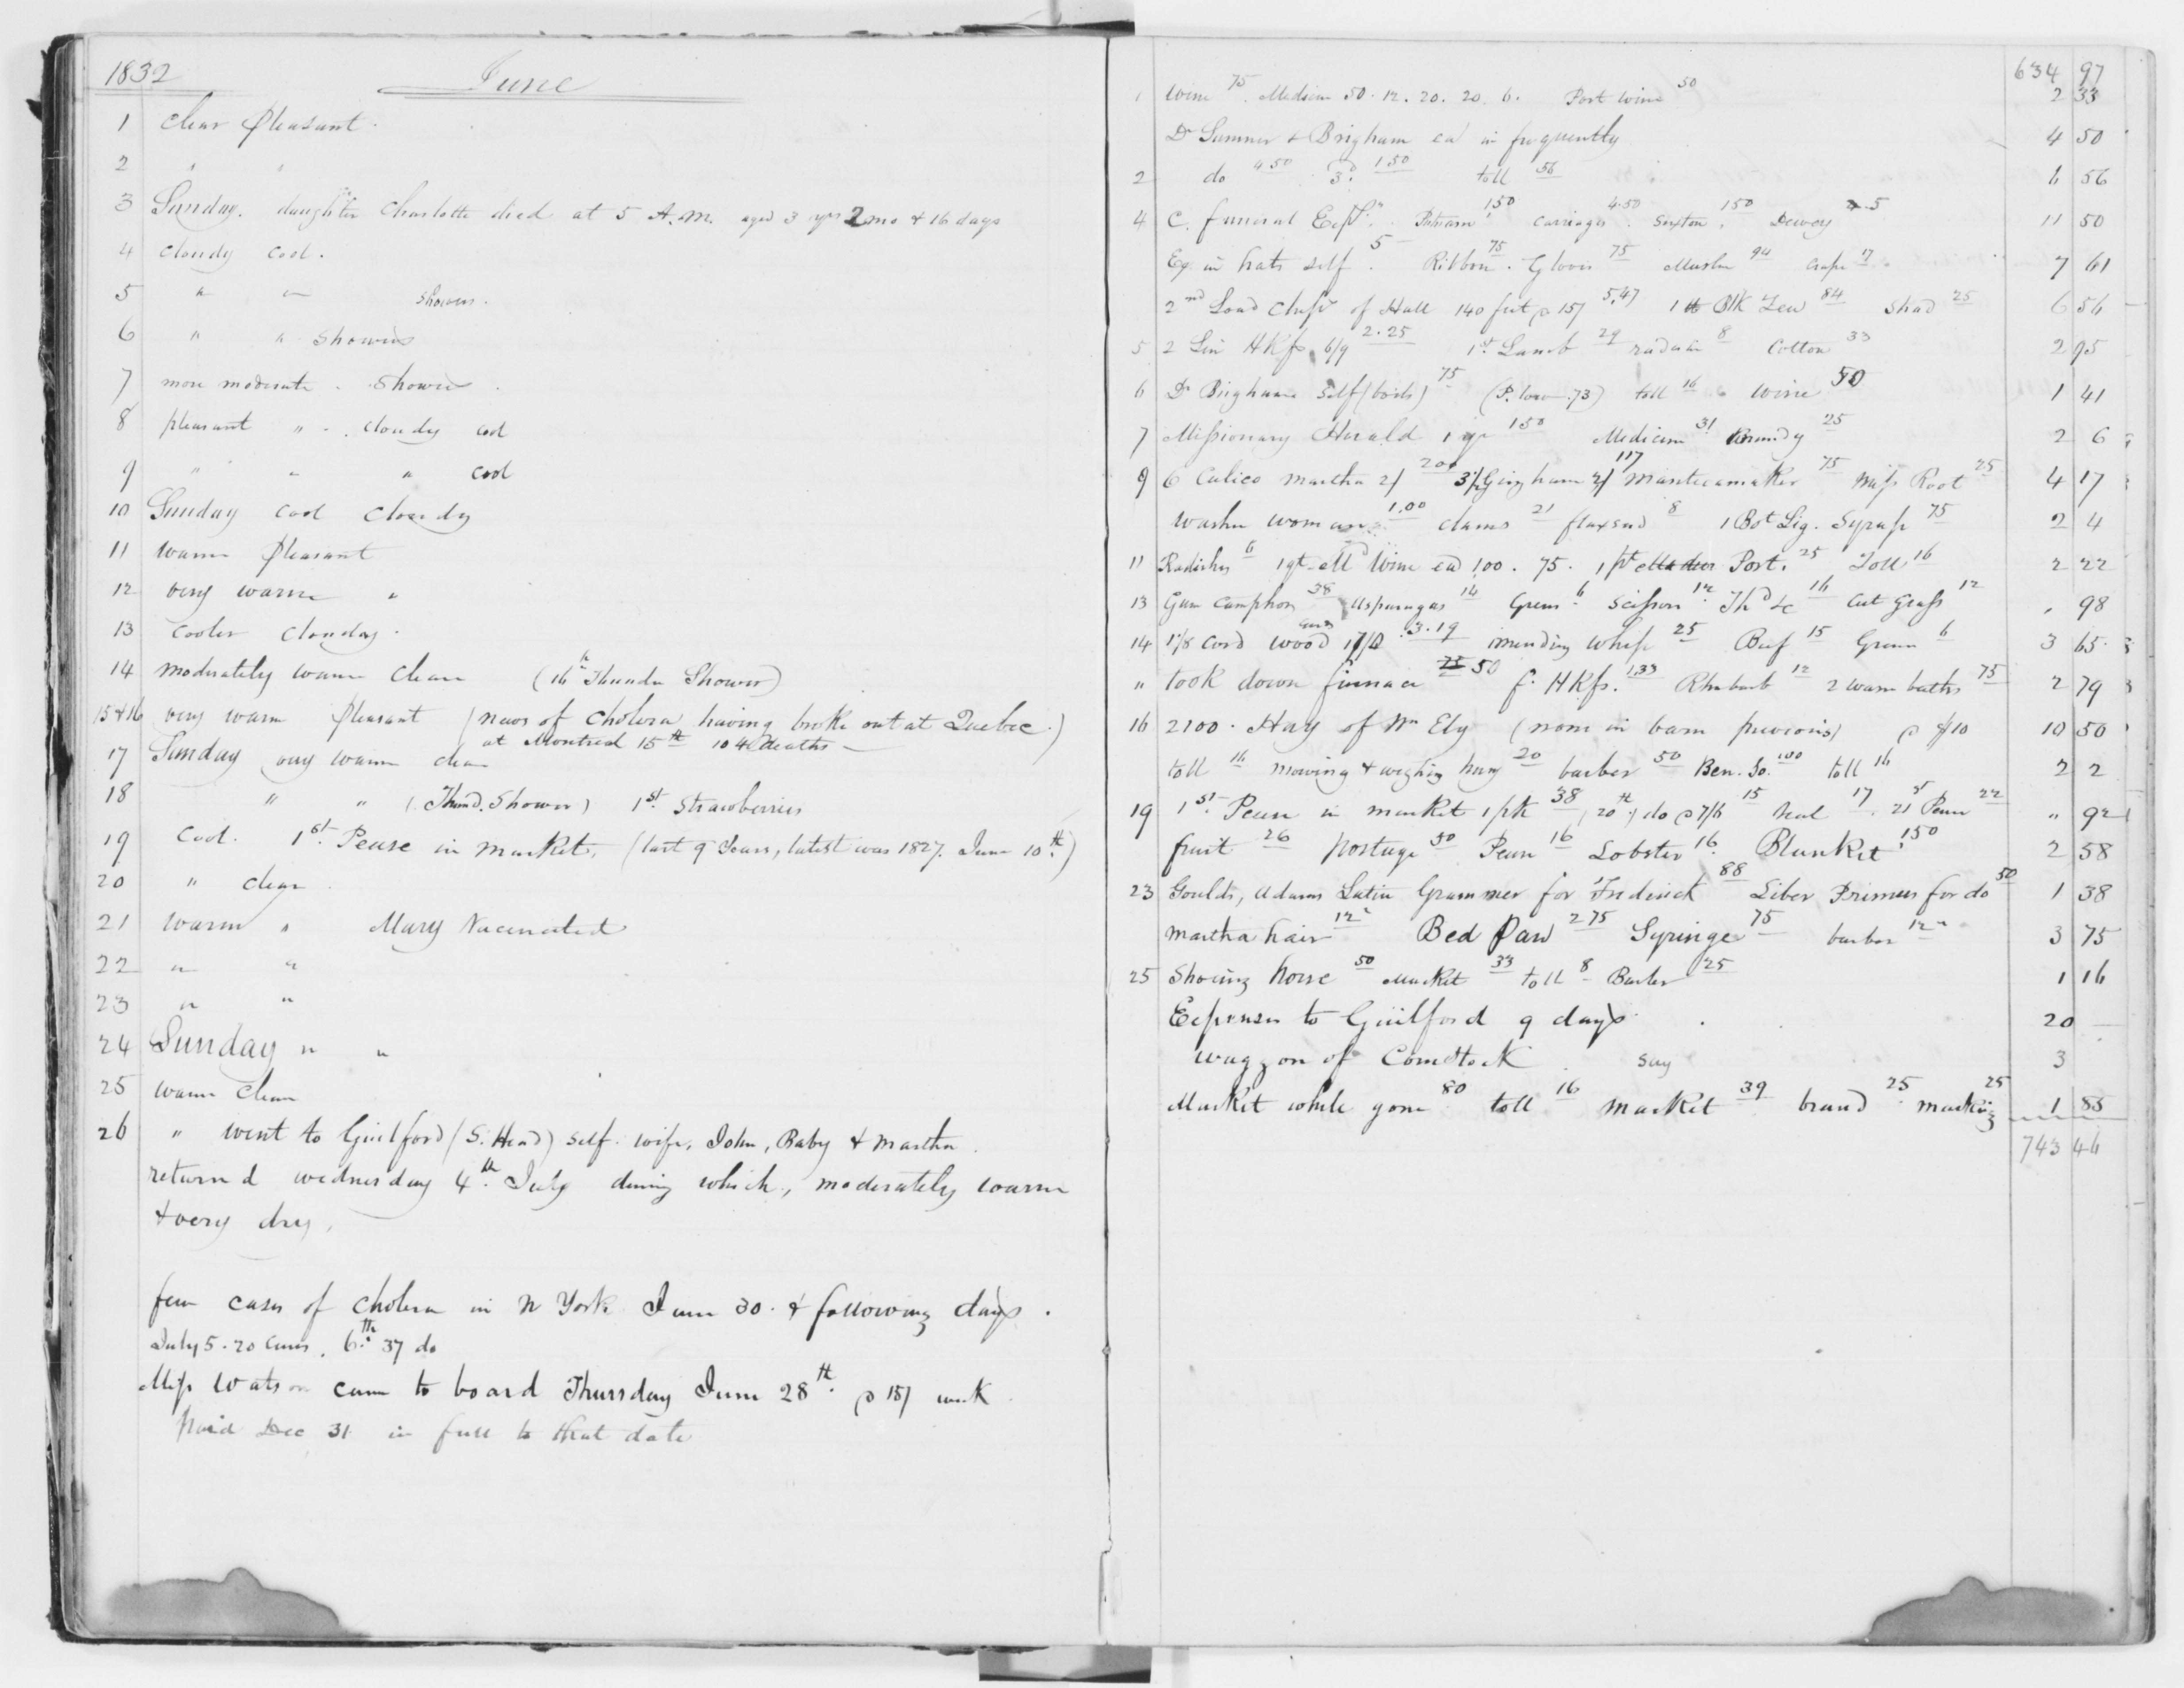 1832 June
1 clear pleasant
2 " "
3 Sunday. daughter Charlotte died at 5 A.M. aged 3 yrs 2 mo & 16 days
4 cloudy cool.
5 " " showers.
6 " " Showers
7 more moderate - Shower
8 pleasant " - cloudy cool
9 " " " cool
10 Sunday cool cloudy
11 warm pleasant
12 very warm "
13 cooler clouday.
14 moderately warm clear (16th Thunder Shower)
15 & 16 very warm pleasant (news of cholera having broke out at Quebec.)
at Montreal 15th 104 deaths -
17 Sunday very warm clear
18 " " (Thund. Shower) 1st strawberries
19 Cool. 1st Pease in market, (last 9 Years, latest was 1827. June 10th)
20 " clear
21 warm " Mary Vacinated
22 " "
23 " "
24 Sunday " "
25 warm clear
26 " went to Guilford (S. Head) self. wife, John, Baby & Martha.
returnd wednesday 4th July during which, moderately warm
& very dry,
few cases of cholera in N York June 30. & following days.
July 5. 20 cases, 6th 37 do
Miss Watson came to board Thursday June 28th @ 15/ week
paid Dec 31 in full to that date
634 97
1 Wine 75. Medicin 50. 12. 20. 20. 6. Port wine 50 2 33
Dr Sumner & Brigham ca in frequently 4 50
2 do 4.50 1.50 toll 56 6 56
4 C. funeral Exps. Putnam 150 Carriages 4.50 Sexton 150 Dewey 11 50
in hats self 5 Ribbon 75. Gloves 75 Muslin 94 Crape 17 7 61
2nd Load of Hall 140 feet @ 15/ 5,47 1 lb Blk Tea 84 Shad 25 6 56
5 2 Lin HKfs 6/9 2.25 1st Lamb 29 8 Cotton 33 2 95
6 Dr Brigham self (boils) 75 toll 16 wine 50 1 41
7 Missionary Herald 1 yr 150 Medicine 31 Brandy 25 2 6
9 6 Calico Martha 2/ 200 3 1/2 Gingham 2/ 117 Manteaumaker 75 Miss Root 25 4 17
washer woman 1,00 clams 21 flaxseed 8 1 Bot Syrup 75 2 4
11 Radishes 6 1 qt Wine ea 100. 75. 1 pt Port. 25 Toll 16 2 22
13 Gum Camphor 38 Asparagus 14 Greens 6 Scissors 12 Thd &c 16 Cut Grass 12 . 98
14 1 1/8 cord wood 17/0 3.19 mending whip 25 Beef 15 Greens 6 3 65
" took down furnace 50 f. HKfs. 1,33 Rhubarb 12 2 warm baths 75 2 79
16 2100. Hay of Wm Ely (none in barn previous) @ $10 10 50
toll 16 mowing & weighing hay 20 barber 50 Ben. So. 100 toll 16 2 2
19 1st Pease in market 1/pk 38, 20th do @ 7/6 15 Veal 17. 21st Pease 22 " 92
fruit 26 postage 50 Pease 16 Lobster 16 Blanket 150 2 58
23 Goulds, Adams Latin Grammer for Frederick 88 Liber Primus for do 50 1 38
Martha hair 12 Bed Pan 275 Syringe 75 barber 12 3 75
25 Shoeing horse 50 Market 33 toll 8 Barber 25 1 16
Expenses to Guilford 9 days 20 -
waggon of Comstock say 3
Market while gone 80 toll 16 market 39 brand 25 marking 25 1 85
743 46